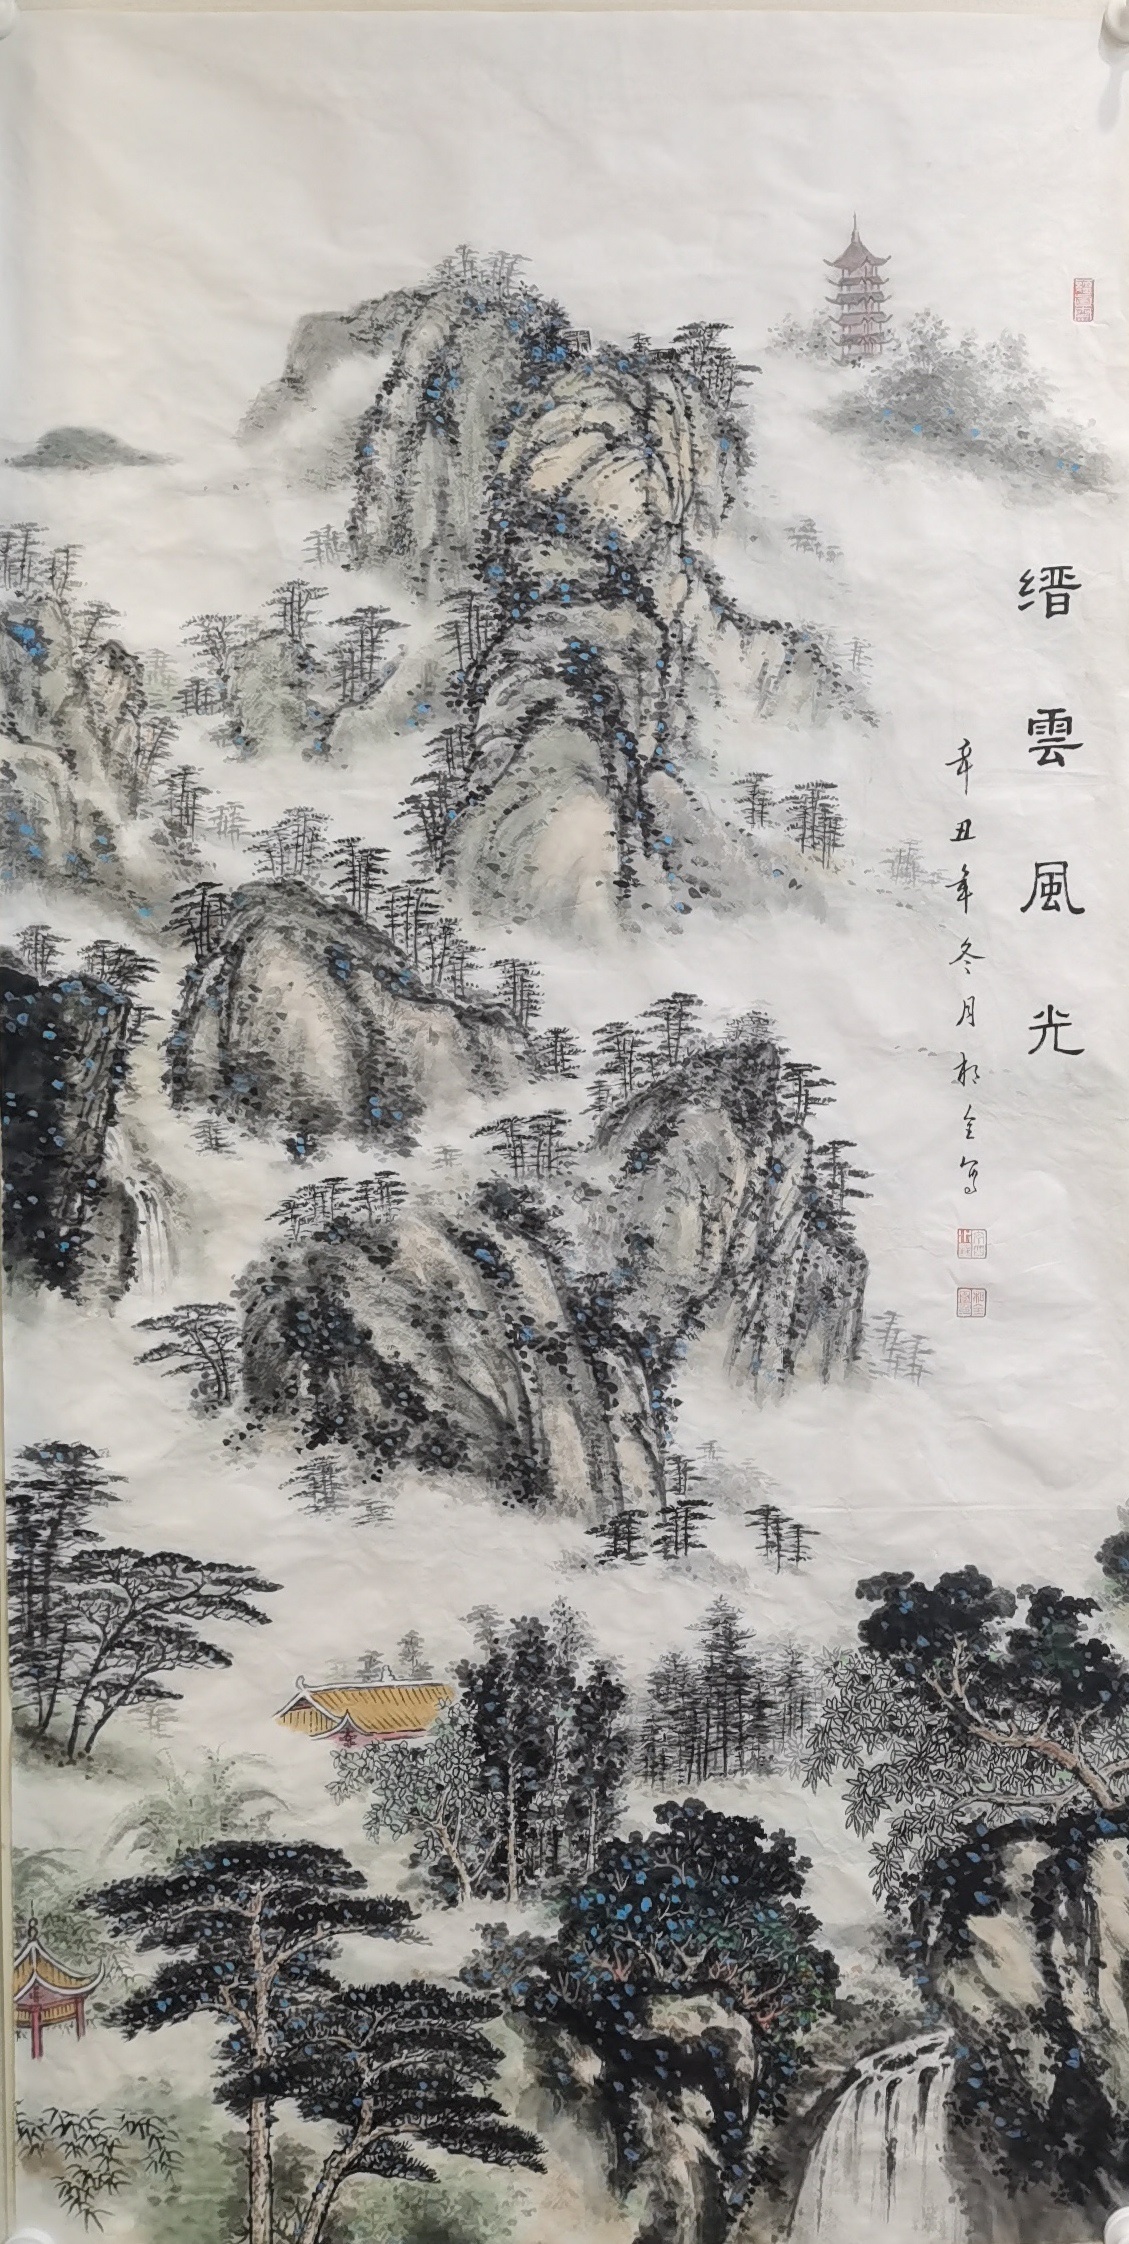 缙雲風光
辛丑年冬月 金寫